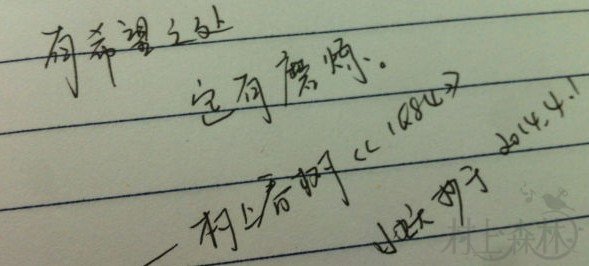 有希望之处
定有磨炼。
—村上春树《1Q84》
抄于 2014.4.1
村上森林